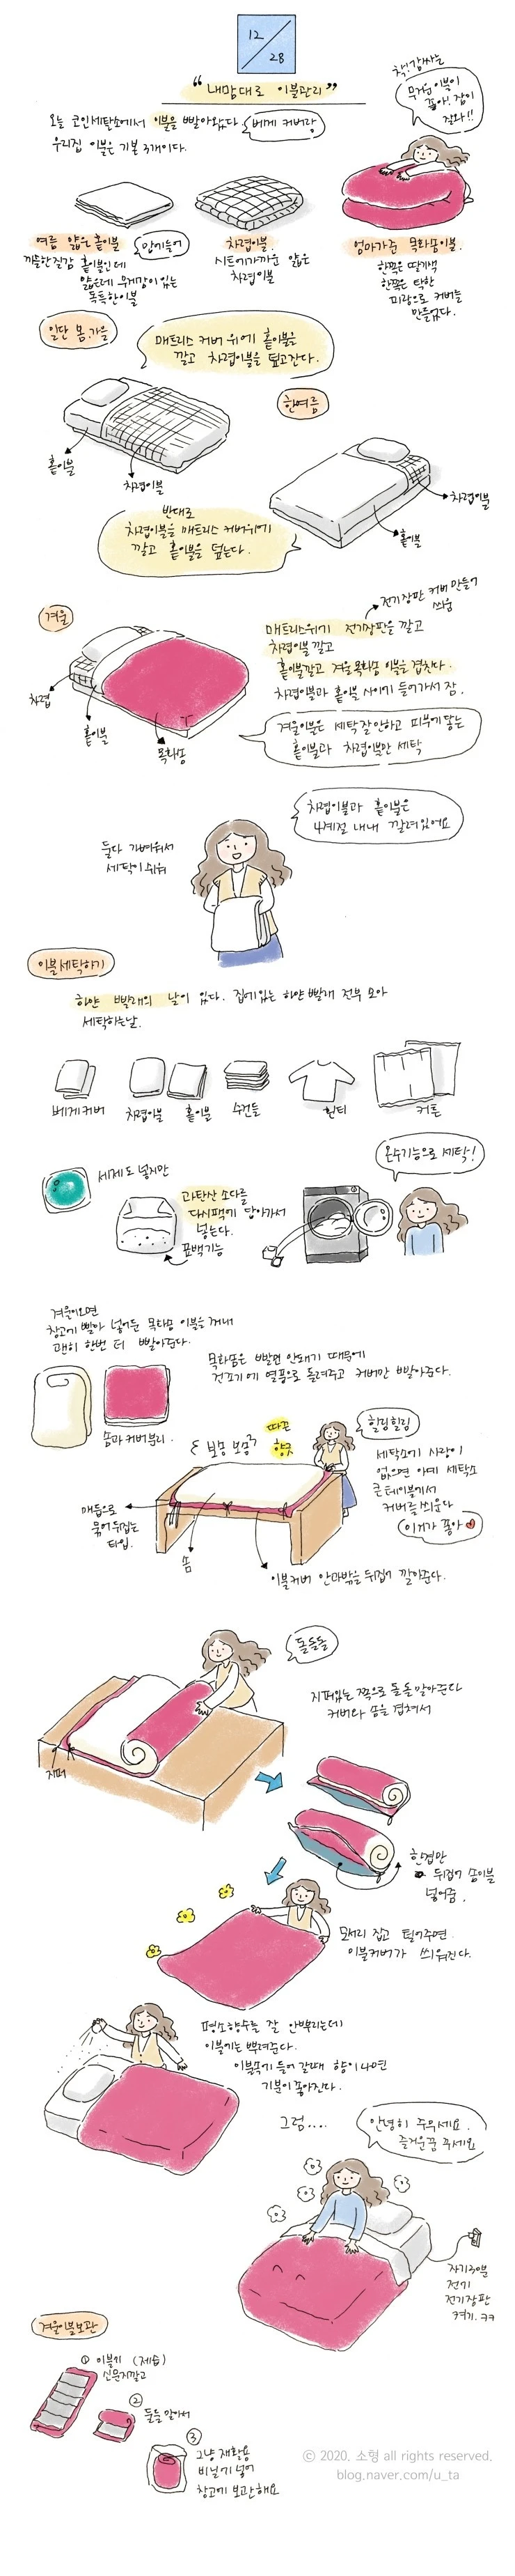 12
28
“내맘대로 이불관리”
오늘 코인세탁소에서 이불을 빨아왔다. 베게 커버랑
우리집 이불은 기본 3개이다.
무거운 이불이
좋아! 잠이
잘와!!
여름 얇은 홑이불
맘에들어
까끌한질감 홑이불인데
얇은데 무게감이 있는
독특한이불
차렵이불.
시트에가까운 얇은
차렵이불
엄마가준 목화솜이불.
한쪽은 딸기색
한쪽은 탁한
파랑으로 커버를
만들었다.
일단 봄,가을
매트리스 커버 위에 홑이불을
깔고 차렵이불을 덮고잔다.
홑이불
차렵이불
한여름
차렵이불
홑이불
반대로
차렵이불을 매트리스 커버위에
깔고 홑이불을 덮는다.
겨울
전기장판 커버 만들어
씌움
매트리스위에 전기장판을 깔고
차렵이불 깔고
홑이불깔고 겨울 목화솜 이불을 겹친다.
차렵이불과 홑이불 사이에 들어가서 잠.
차렵
홑이불
목화솜
겨울이불은 세탁 잘안하고 피부에 닿는
홑이불과 차렵이불만 세탁
차렵이불과 홑이불은
4계절 내내 깔려있어요
둘다 가벼워서
세탁이 쉬워
이불세탁하기
하얀 빨래의 날이 있다. 집에있는 하얀 빨래 전부 모아
세탁하는날.
베게커버
차렵이불
홑이불
수건들
흰티
커튼
온수기능으로 세탁!
세제도 넣지만
과탄산 소다를
다시팩에 담아가서
넣는다.
표백기능
겨울이오면
창고에 빨아 넣어둔 목화솜 이불을 꺼내
괜히 한번 더 빨아준다.
목화솜은 빨면 안돼기 때문에
건조기에 열풍으로 돌려주고 커버만 빨아준다.
솜과 커버분리.
뽀송 뽀송
따끈
향긋
힐링힐링
세탁소에 사람이
없으면 아예 세탁소
큰 테이블에서
커버를 씌운다
이거가 좋아
매듭으로
묶어 뒤집는
타입.
솜
이불커버 안과밖을 뒤집어 깔아준다.
돌돌돌
지퍼있는 쪽으로 돌돌 말아준다
커버와 솜을 겹쳐서
지퍼
한겹만
뒤집어 솜이불
넣어줌.
모서리 잡고 털어주면
이불커버가 씌워진다.
평소향수를 잘 안뿌리는데
이불에는 뿌려준다.
이불속에 들어 갈때 향이 나면
기분이 좋아진다.
그럼....
안녕히 주무세요.
즐거운꿈 꾸세요
자기 30분
전기
전기장판
켜기. ㅋㅋ
겨울이불보관
① 이불에 (제습)
신문지깔고
② 돌돌 말아서
③ 그냥 재활용
비닐에 넣어
창고에 보관해요
© 2020. 소형 all rights reserved.
blog.naver.com/u_ta